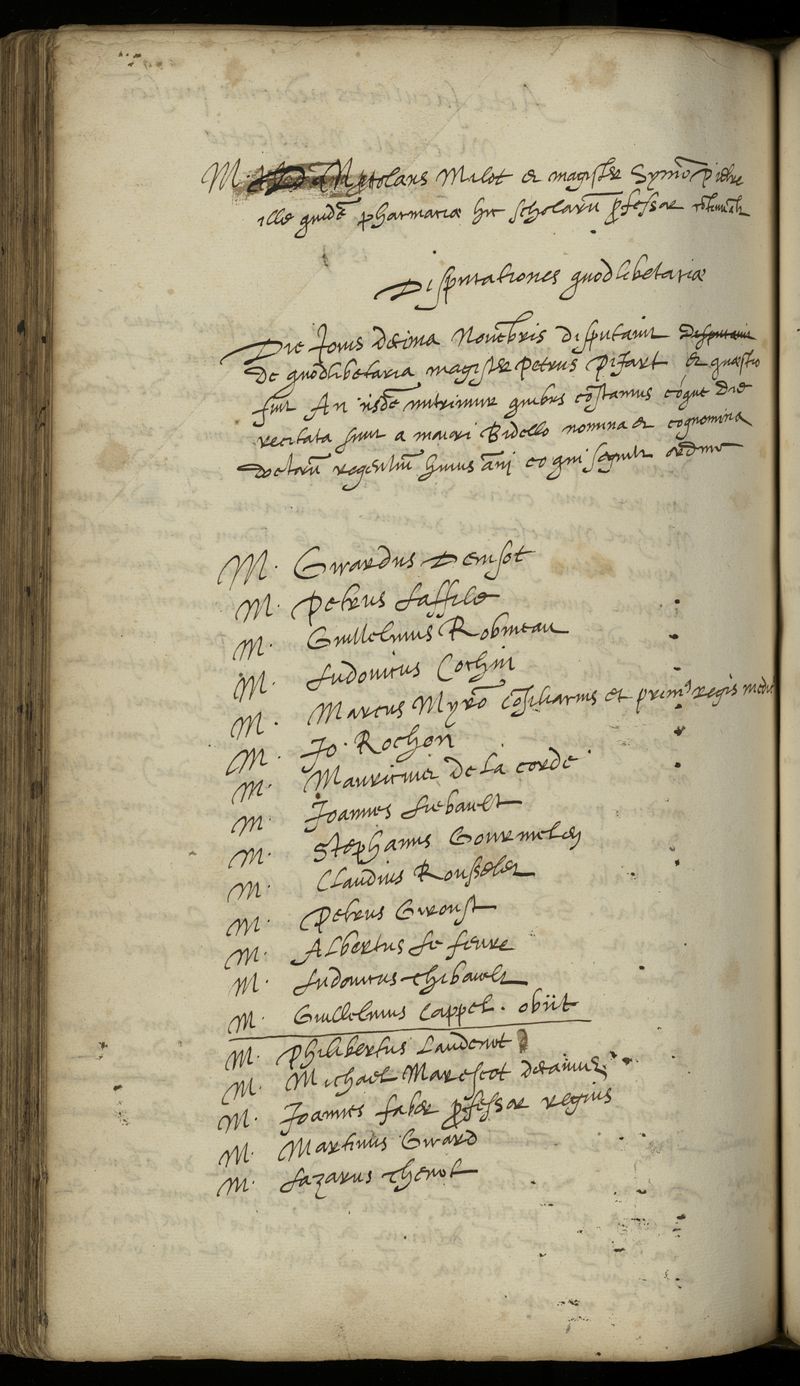 M. Bartolaus Milot et magister Symō Pietre
ille quidē pharmaciæ hic scholarū professor
Disputationes quodlibetariæ
Die Jovis decima Novēbris disputavit disputavit
de quodlibetaria magister Petrus Pijart et quæstio
fuit An iisdē nutrimur quibus cōstamus eóque die
recitata sunt a maiori Bidello nomina et cognomina
doctorū regentiū huius ānj eo qui sequitur ordine
M. Girardus Denisot
M. Petrus Laffile
M. Guillelmus Robineau
M. Ludovicus Cochin
M. Marcus Myrō cōsiliarius et prim9 regis medic
M. Jo. Rochon
M. Mauricius de la corde
M. Joannes Liebault
M. Stephanus Gourmelen
M. Claudius Rousselet
M. Petrus Giroust
M. Albertus Le fevre
M. Ludovicus Thibault
M. Guillelmus Cappel. obiit
M. Philibertus Laudenot
M. Michael Marescot decanus
M. Joannes faber professor regius
M. Martinus Girard
M. Lazarus Thenot